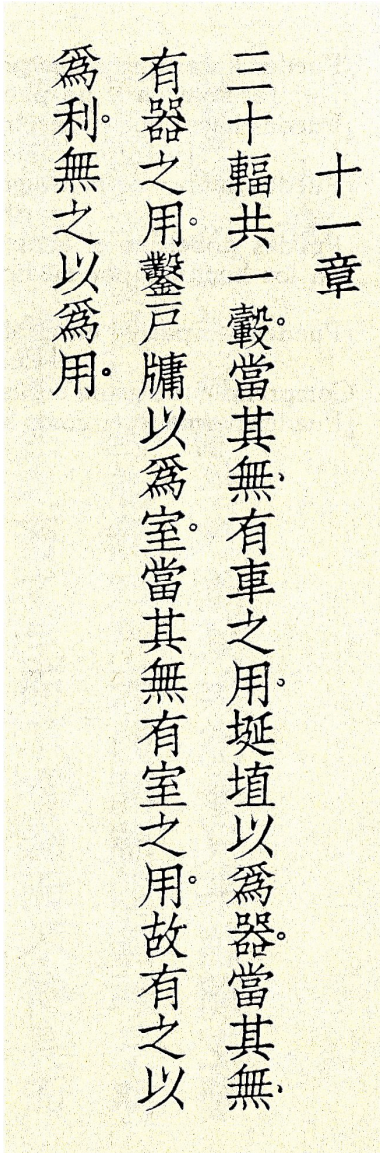 十一章
三十輻共一轂。當其無、有車之用。埏埴以爲器。當其無、
有器之用。鑿戸牖以爲室。當其無有室之用。故有之以
爲利。無之以爲用。